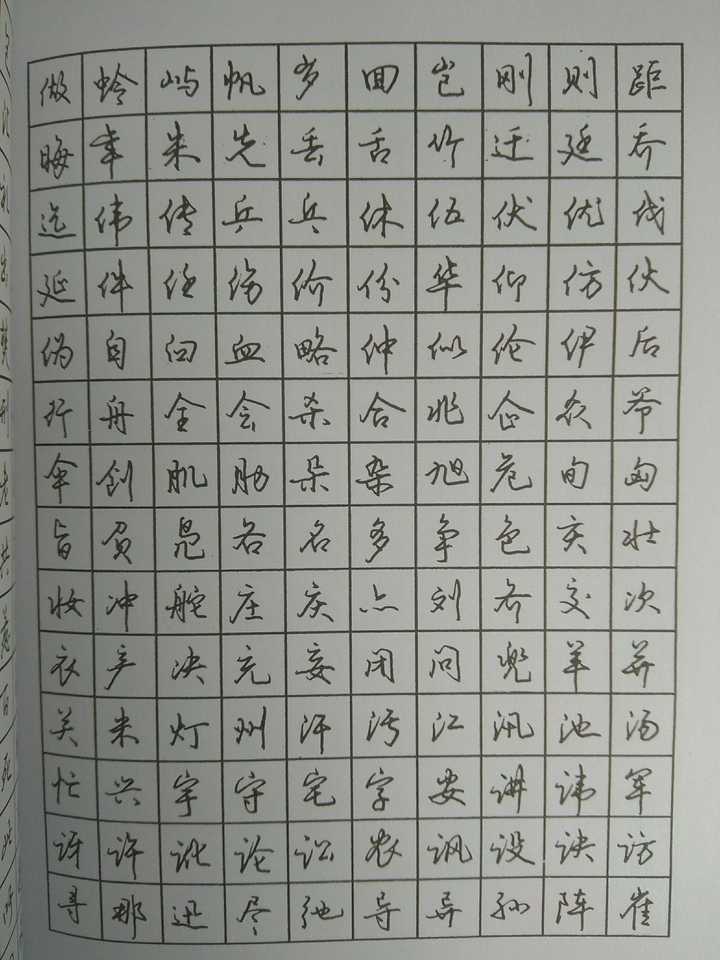 做 蛉 屿 帆 岁 回 岂 刚 则 距
晦 年 朱 先 丢 舌 竹 迁 廷 乔
迄 伟 传 乒 乓 休 伍 伏 优 伐
延 件 任 伤 价 份 华 仰 仿 伙
伪 自 向 血 略 仲 似 伦 伊 后
行 舟 全 会 杀 合 兆 企 众 爷
伞 创 肌 肋 朵 杂 旭 危 旬 匈
旨 负 各 名 多 争 色 亥 壮
妆 冲 舵 庄 庆 刘 齐 交 次
衣 产 决 充 妄 闭 问 兜 羊 并
关 米 灯 州 汗 污 江 汛 池 汤
忙 兴 宇 守 宅 字 安 讲 讳 军
讶 许 讹 论 讼 农 讽 设 诀 访
寻 那 迅 尽 弛 导 异 孙 阵 崔